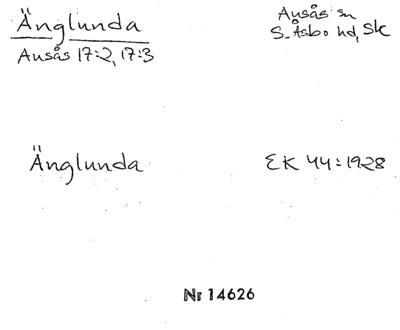 Änglunda
Ausås 17:2, 17:3
Ausås sn
S. Åsbo hd, Sk
Änglunda
EK 44:1928
Nr 14626